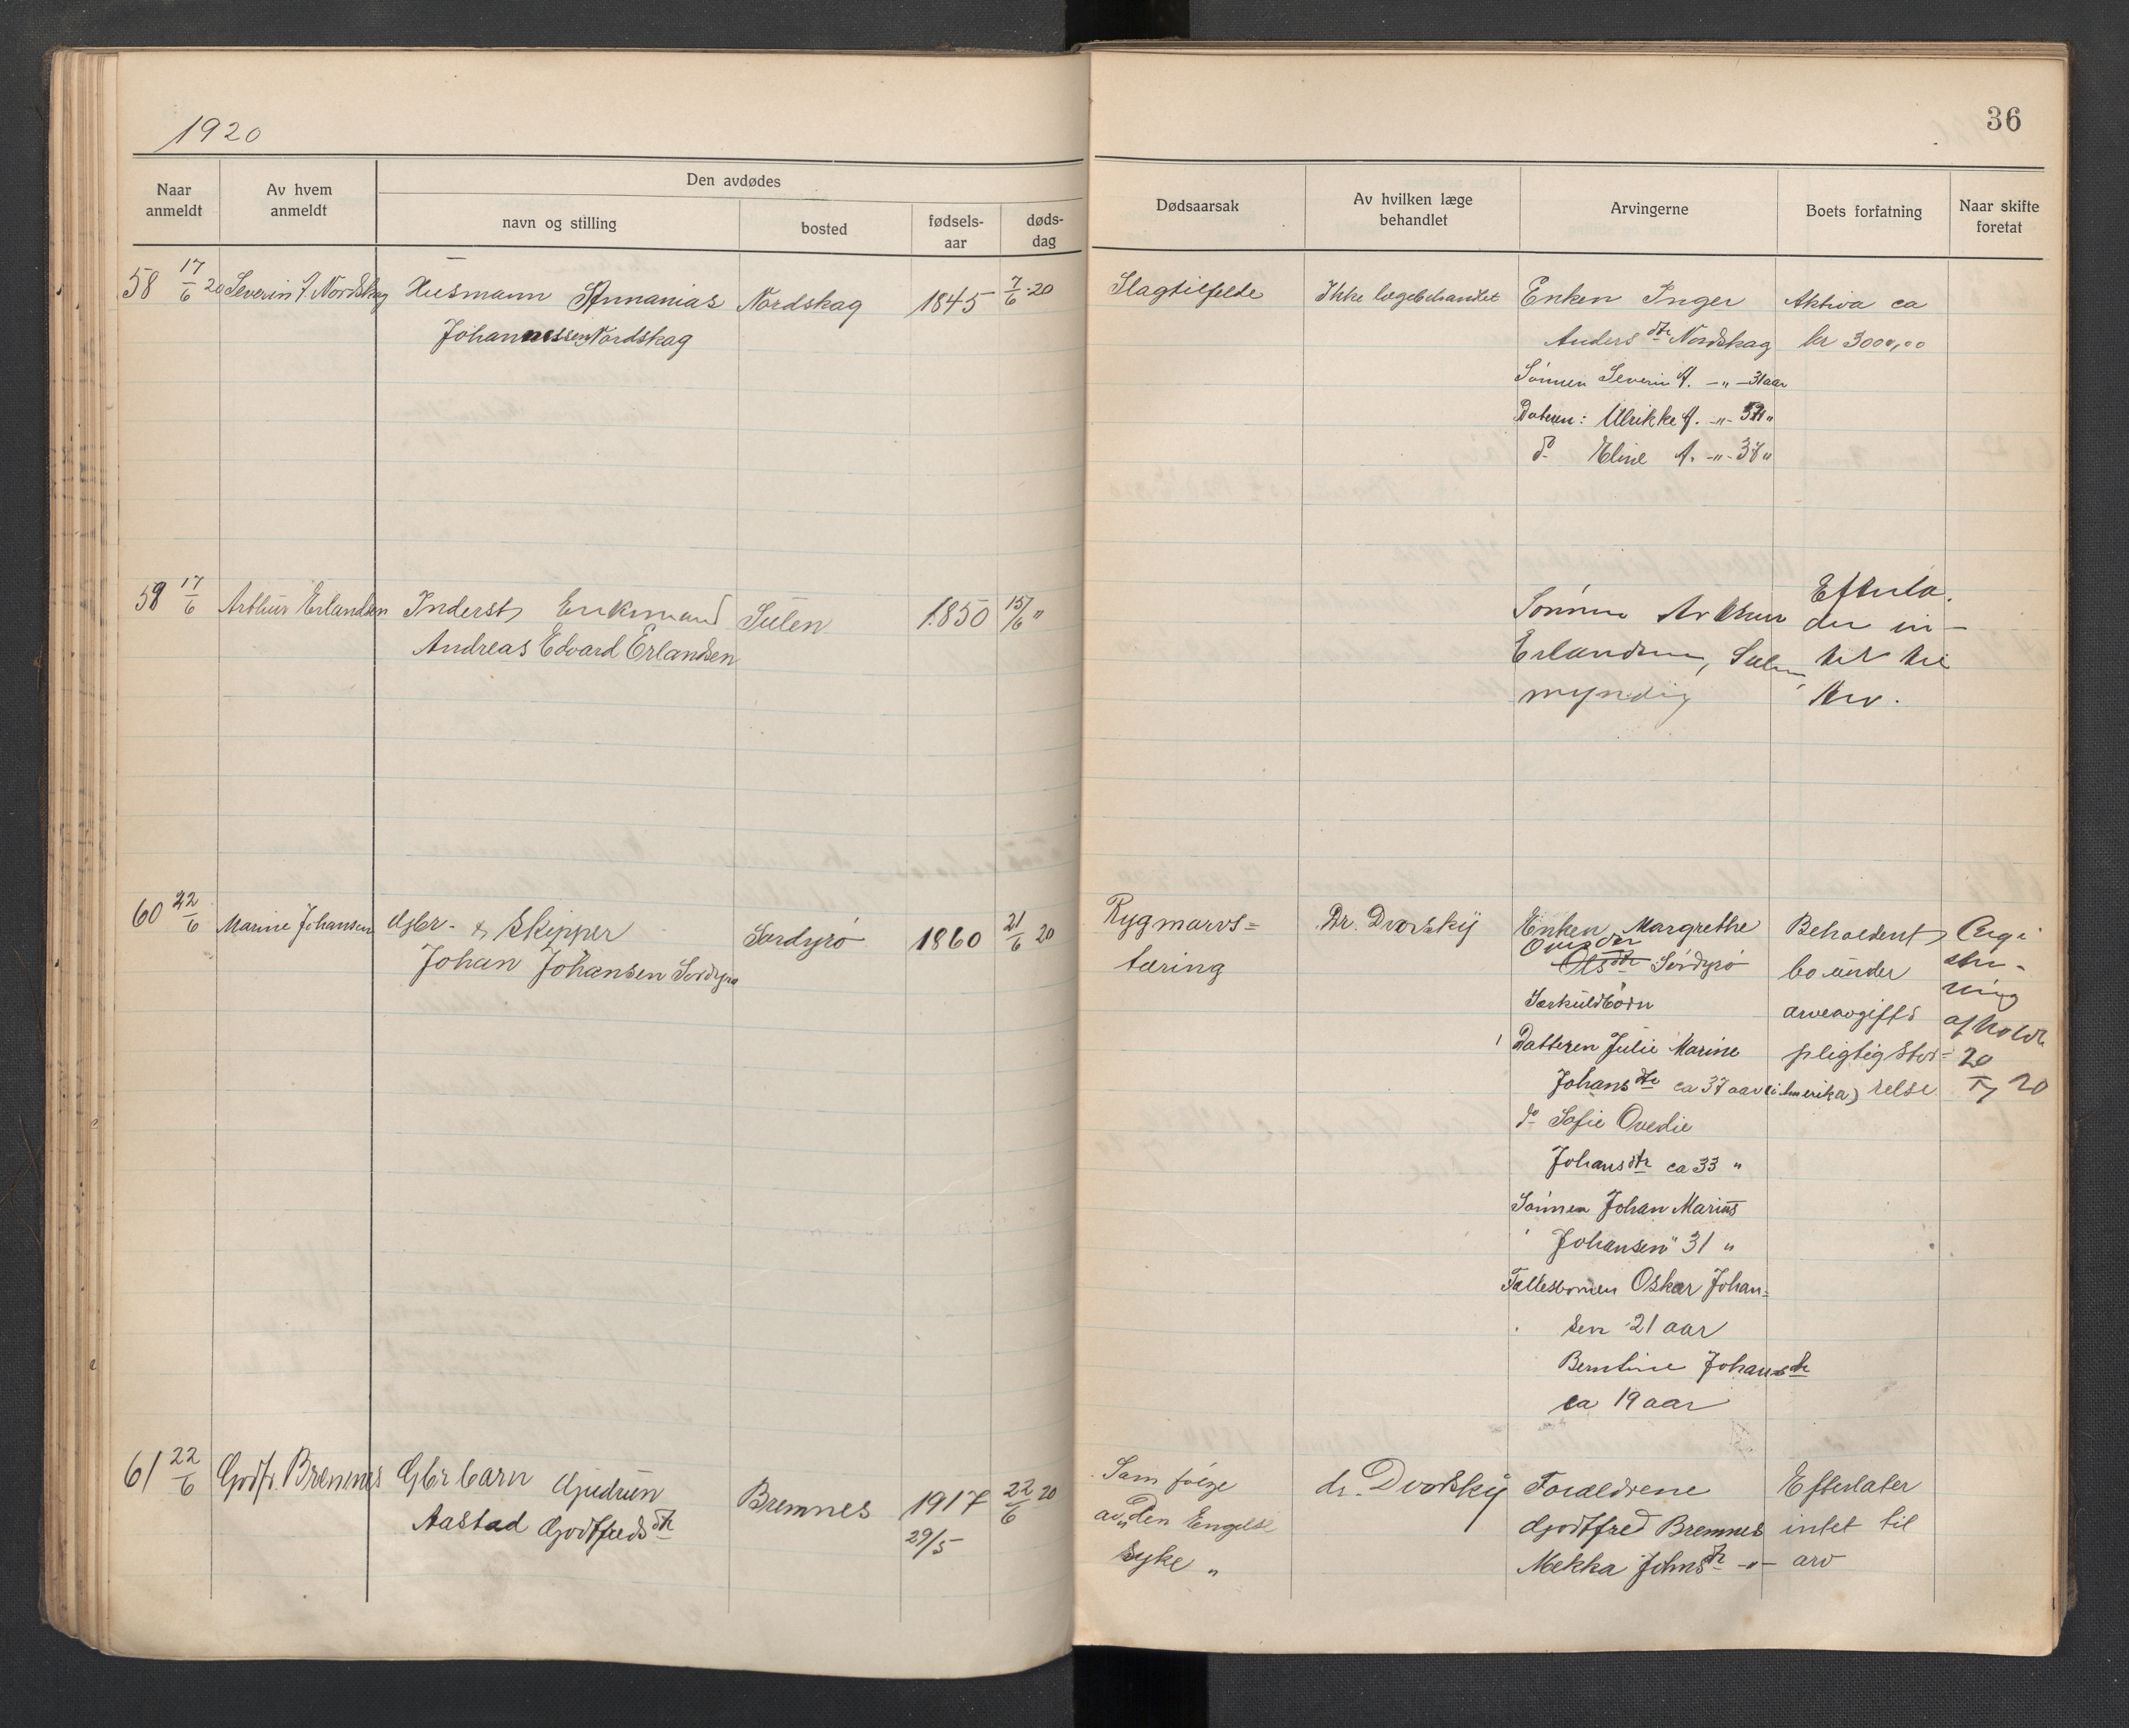 1920
36
Naar anmeldt
Av hvem anmeldt
Den avdødes
navn og stilling
bosted
fødsels-aar
døds-dag
Dødsaarsak
Av hvilken læge behandlet
Arvingerne
Boets forfatning
Naar skifte foretat
58 17/6 20 Severin A Nordskag
Husmann Annanias
Johannessen Nordskag
Nordskag
1845
7/6-20
Slagtilfelde
Ikke lægebehandlet
Enken Inger
Anders dtr Nordskag
Sønnen Severin A. -"- 31 aar
Datteren: Ulrikke A. -"-
do Eline A. -"- 37 "
Aktiva ca
kr 3000,00
59 17/6 Arthur Erlandsen
Inderst, Enkmand
Andreas Edvard Erlandsen
Sulen
1850
15/6 "
Sønnen Arthur
Erlandsen, Sulen,
myndig
Efterla-
der in-
tet til
Arv.
60 22/6 Marine Johansen
Gbr. & Skipper
Johan Johansen Sørdyrø
Sørdyrø
1860
21/6 20
Rygmarvs=
tæring
Dr. Dvorsky
Enken Margrethe
Ovesdtr
Olsdtr Sørdyrø
Særkuldbørn
1 Datteren Julie Marine
Johansdtr ca 37 aar (i Amerika)
do Sofie Ovedie
Johansdtr ca 33 "
Sønnen Johan Marius
Johansen " 31 "
Fællesbørnen Oskar Johan=
sen 21 aar
Berntine Johansdtr
ca 19 aar
Beholdent,
bo under
arveavgifts
pligtig stør=
relse
Regi
stre-
ring
afholdt
20/7 20
61 22/6 Godtf. Bremnes
Gbr barn Gudrun
Aastad Godtfredsdtr
Bremnes
1917
29/5
22/6 20
Som følge
av "Den Engelse
syke "
dr. Dvorsky
Forældrene
Godtfred Bremnes
Mekka Johnsdtr -"-
Efterlater
intet til
arv